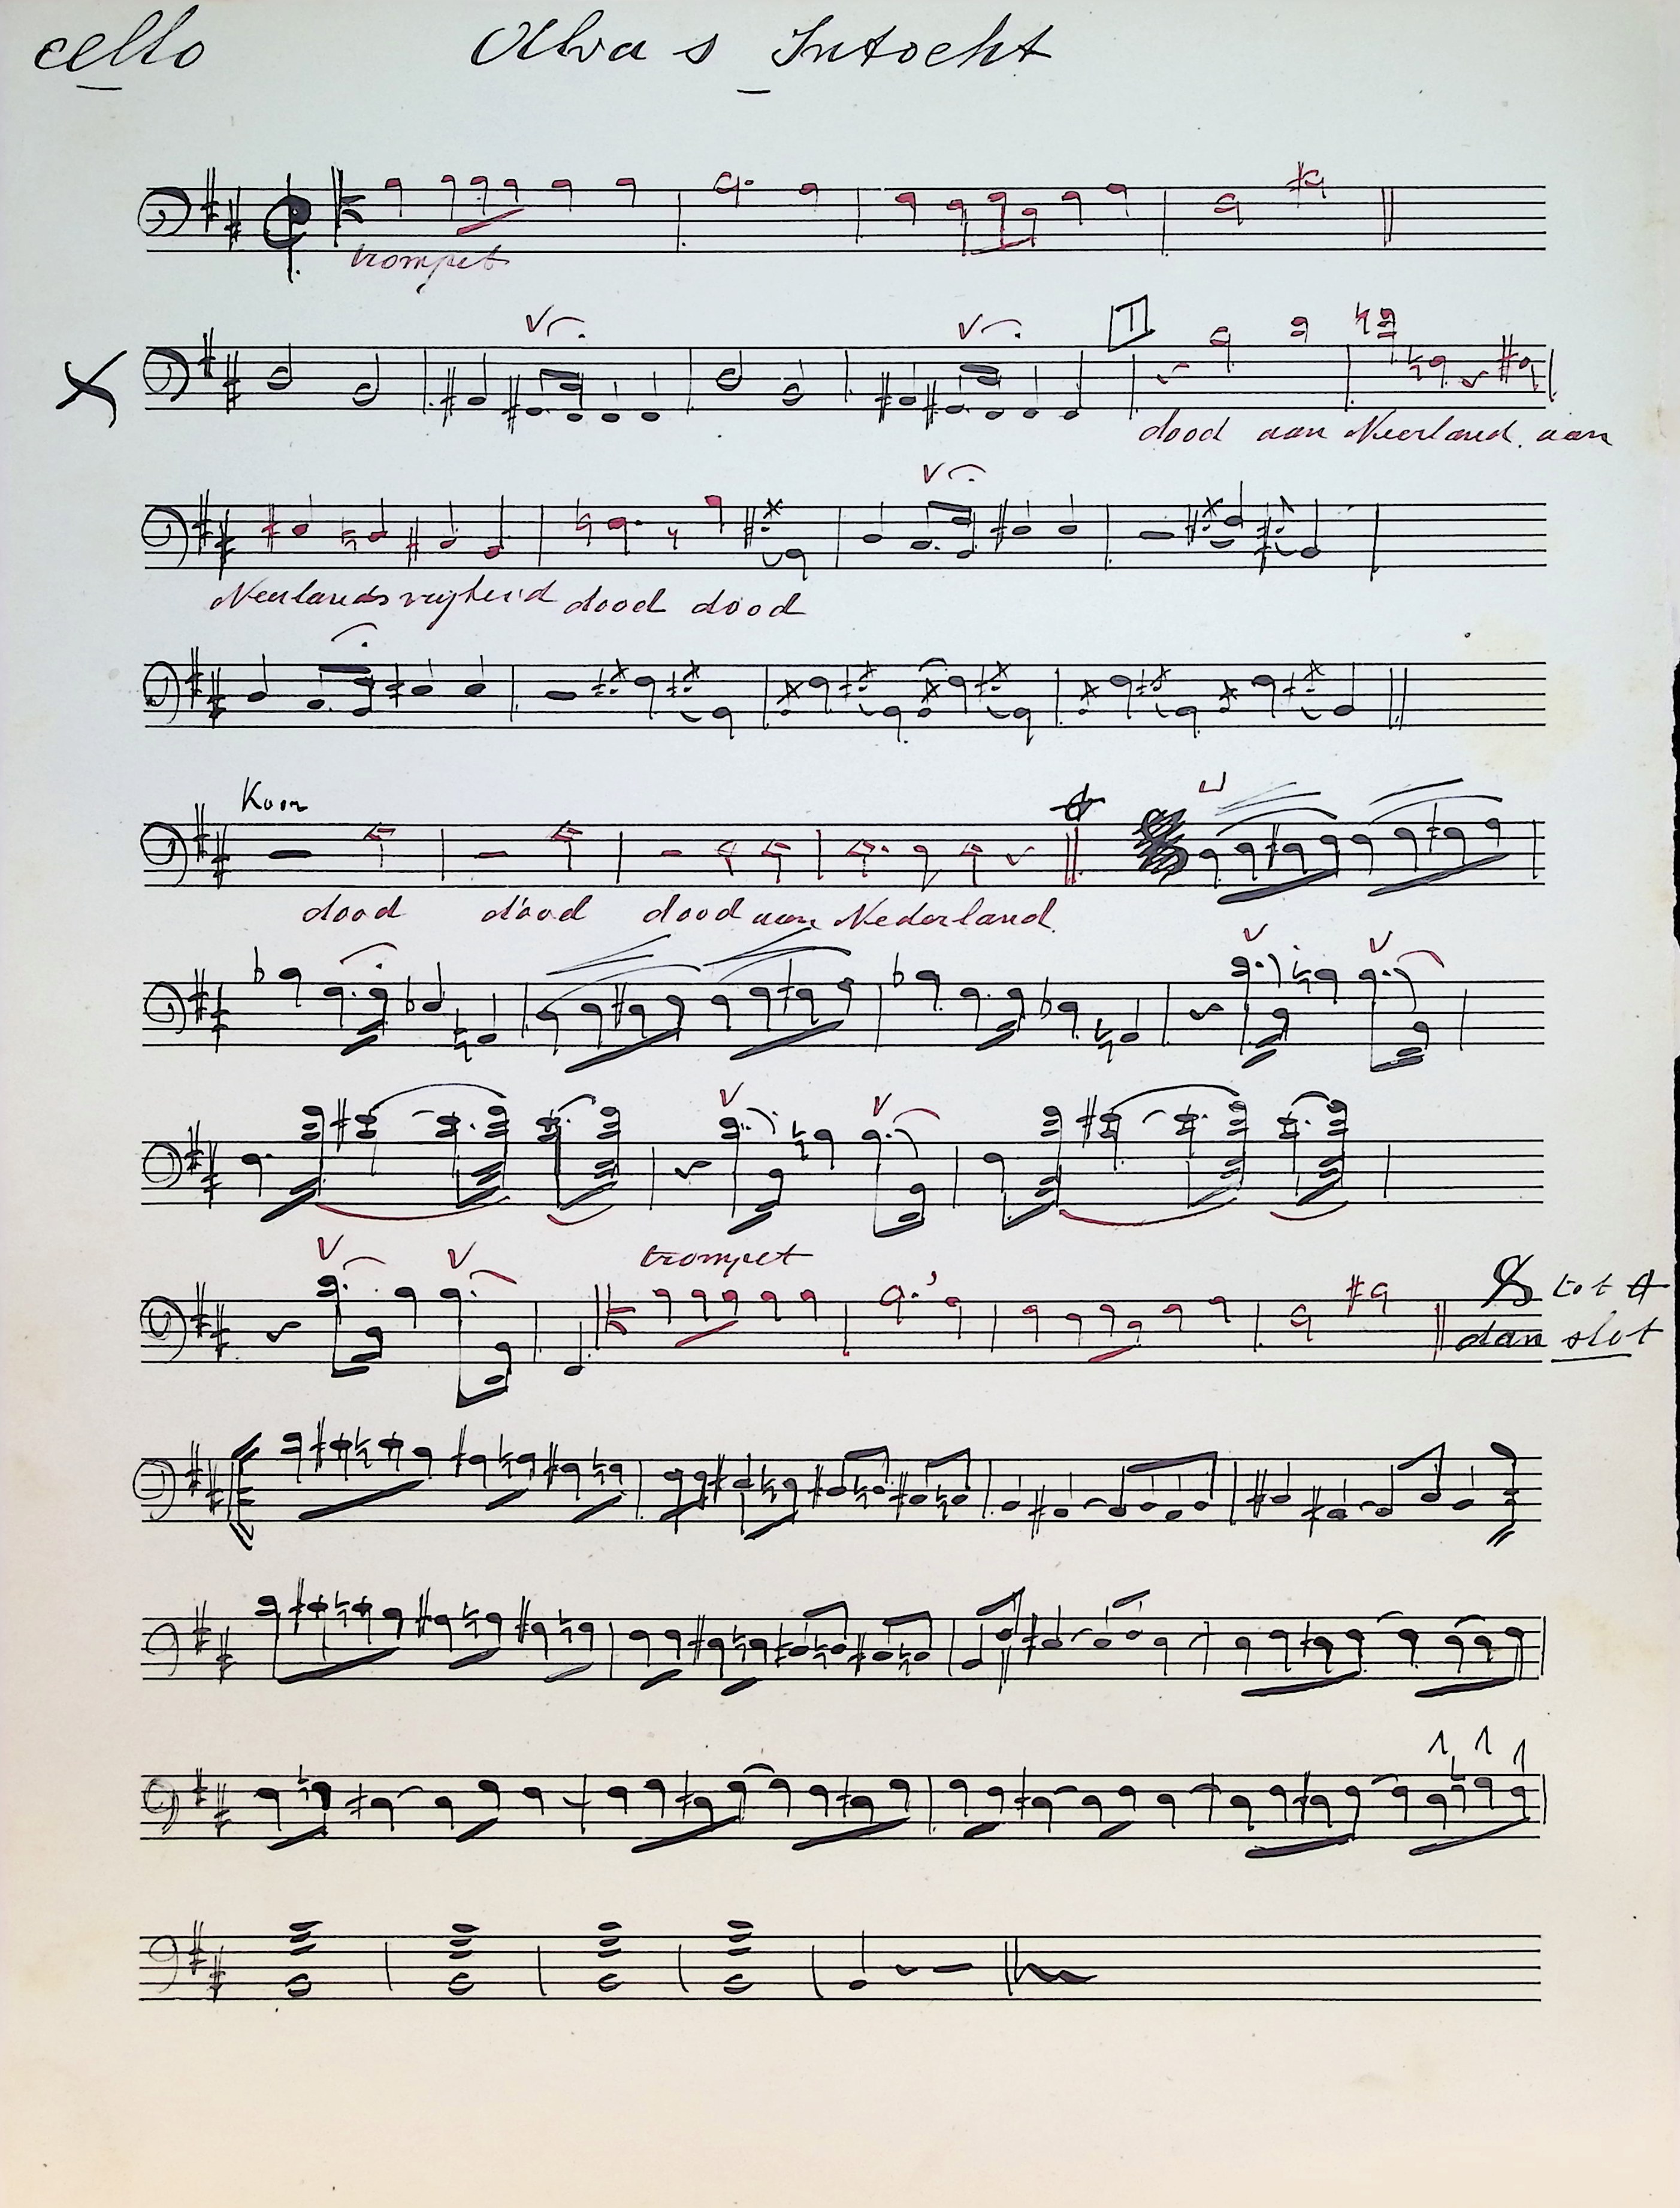 cello Alva s Intocht
trompet
1
dood aan Neerland. aan
Neerlands vrijheid dood dood
Koor
dood dood dood aan Nederland.
trompet
tot
dan slot